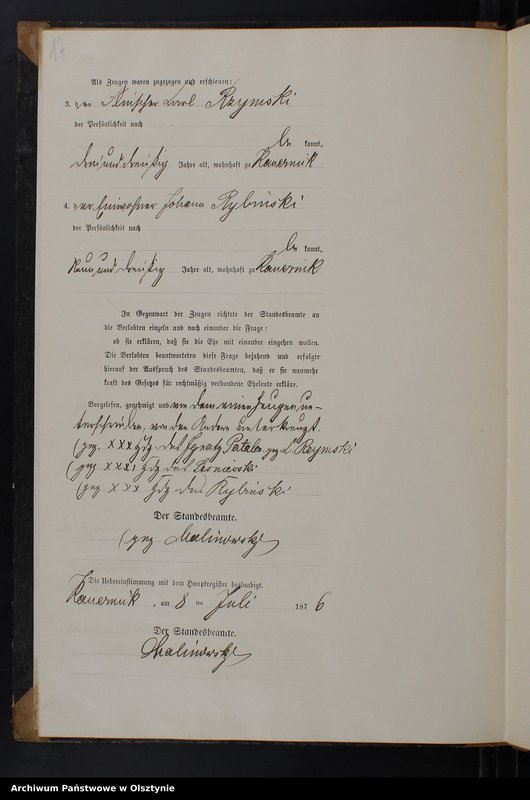 17
Als Zeugen waren zugezogen und erschienen:
3. der Karl Rzymski
der Persönlichkeit nach
be kannt,
drei und dreißig Jahre alt, wohnhaft zu Kauernik
4. der Einwohner Johann Rybinski
der Persönlichkeit nach
be kannt,
neun und dreißig Jahre alt, wohnhaft zu Kauernik
In Gegenwart der Zeugen richtete der Standesbeamte an
die Verlobten einzeln und nach einander die Frage:
ob sie erklären, daß sie die Ehe mit einander eingehen wollen.
Die Verlobten beantworteten diese Frage bejahend und erfolgte
hierauf der Ausspruch des Standesbeamten, daß er sie nunmehr
kraft des Gesetzes für rechtmäßig verbundene Eheleute erkläre.
Vorgelesen, genehmigt und von dem einen Zeugen un-
terschrieben, von den Andern unterkreuzt.
(gez. XXX Hdz des Ignatz gez Rzymski
(gez XXX Hdz des
(gez XXX Hdz des Rybinski
Der Standesbeamte.
(gez Malinowski
Die Uebereinstimmung mit dem Hauptregister beglaubigt.
Kauernik, am 8 ten Juli 1876
Der Standesbeamte.
Malinowski
Archiwum Państwowe w Olsztynie